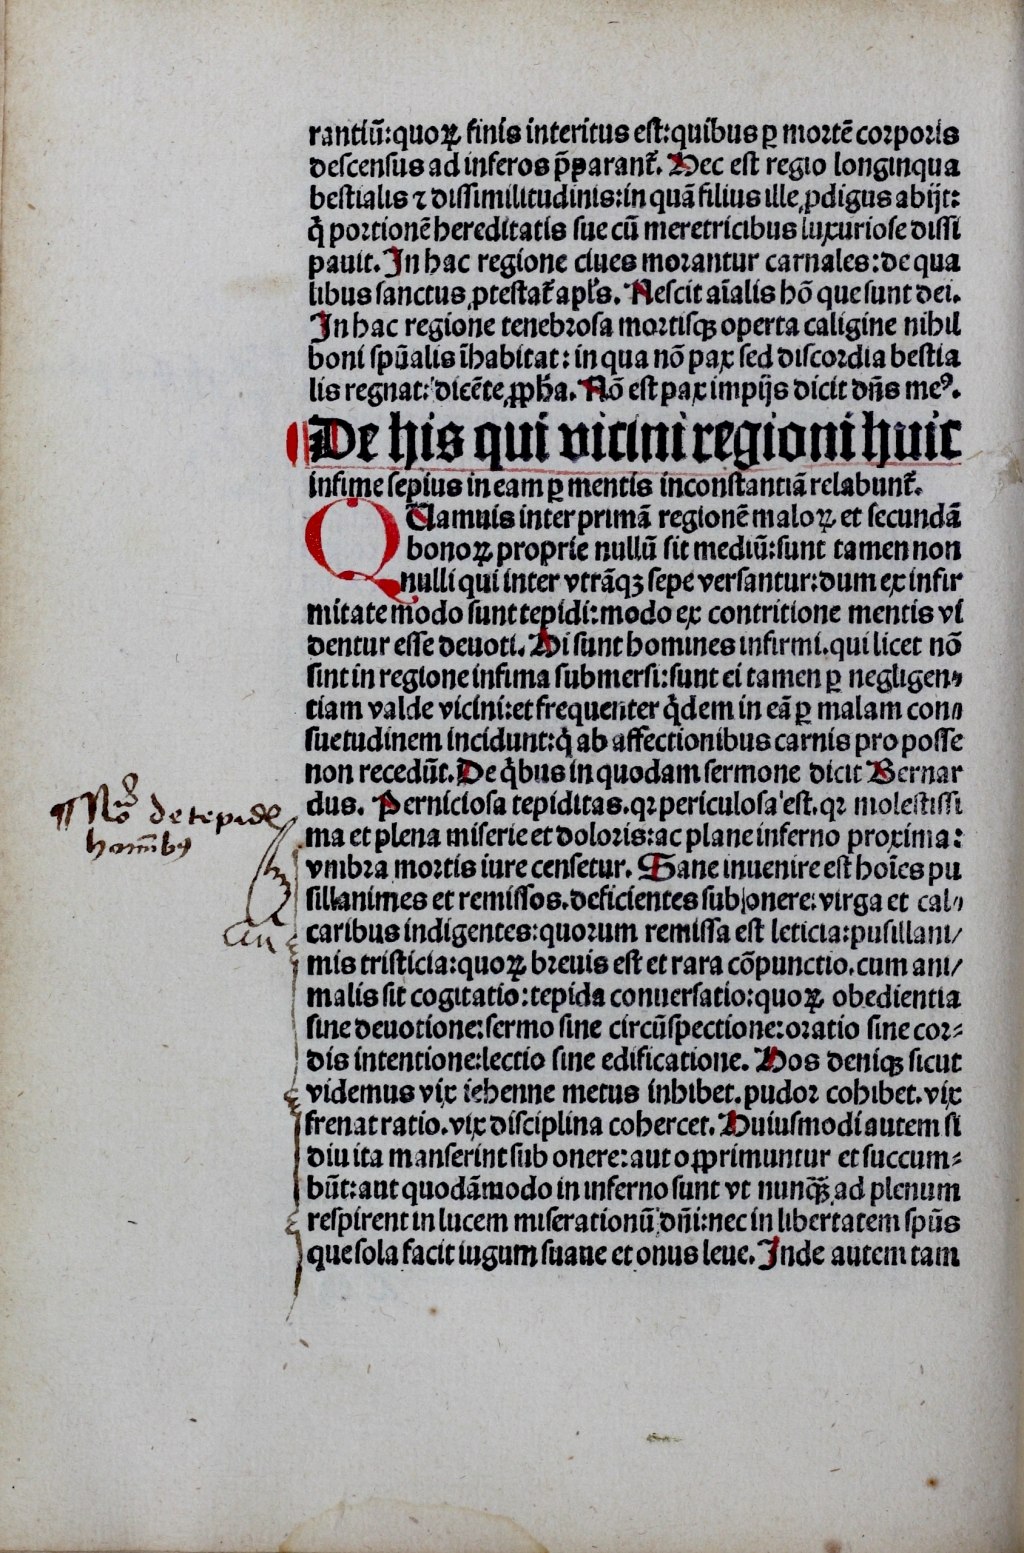 rantiū:quoꝝ finis interitus est:quibus ꝑ mortē corporis
descensus ad inferos p̄parant᷑. Hec est regio longinqua
bestialis ⁊ dissimilitudinis:in quā filius ille ꝓdigus abijt:
q̇ portionē hereditatis sue cū meretricibus luxuriose dissi
pauit. In hac regione ciues morantur carnales:de qua
libus sanctus ꝓtestat᷑ apl's. Nescit aīalis hō que sunt dei.
In hac regione tenebrosa mortisqꝫ operta caligine nihil
boni spūalis īhabitat: in qua nō pax sed discordia bestia
lis regnat: dicēte ꝓpha. Nō est pax impijs dicit dn̄s meꝰ.
De his qui vicini regioni huic
infime sepius in eam ꝑ mentis inconstantiā relabunt᷑.
QUamuis inter primā regionē maloꝝ et secundā
bonoꝝ proprie nullū sit mediū:sunt tamen non
nulli qui inter vtrāqꝫ sepe versantur:dum ex infir
mitate modo sunt tepidi:modo ex contritione mentis vi
dentur esse deuoti. Hi sunt homines infirmi.qui licet nō
sint in regione infima submersi:sunt ei tamen ꝑ negligen⸗
tiam valde vicini:et frequenter q̇dem in eā ꝑ malam con⸗
suetudinem incidunt:q̇ ab affectionibus carnis pro posse
non recedūt. De q̇bus in quodam sermone dicit Bernar
dus. Perniciosa tepiditas.qꝛ periculosa est.qꝛ molestissi
ma et plena miserie et doloris:ac plane inferno proxima:
vmbra mortis iure censetur. Sane inuenire est hoīes pu
sillanimes et remissos.deficientes sub onere:virga et cal⸗
caribus indigentes:quorum remissa est leticia:pusillani/
mis tristicia:quoꝝ breuis est et rara cōpunctio.cum ani/
malis sit cogitatio:tepida conuersatio:quoꝝ obedientia
sine deuotione:sermo sine circūspectione:oratio sine cor⸗
dis intentione:lectio sine edificatione. Hos deniqꝫ sicut
videmus vix iehenne metus inhibet.pudor cohibet.vix
frenat ratio.vix disciplina cohercet. Huiusmodi autem si
diu ita manserint sub onere:aut opprimuntur et succum⸗
būt:aut quodāmodo in inferno sunt vt nunqꝫ ad plenum
respirent in lucem miserationū dn̄i:nec in libertatem spūs
que sola facit iugum suaue et onus leue. Inde autem tam
¶ No de tepidis
homībꝰ